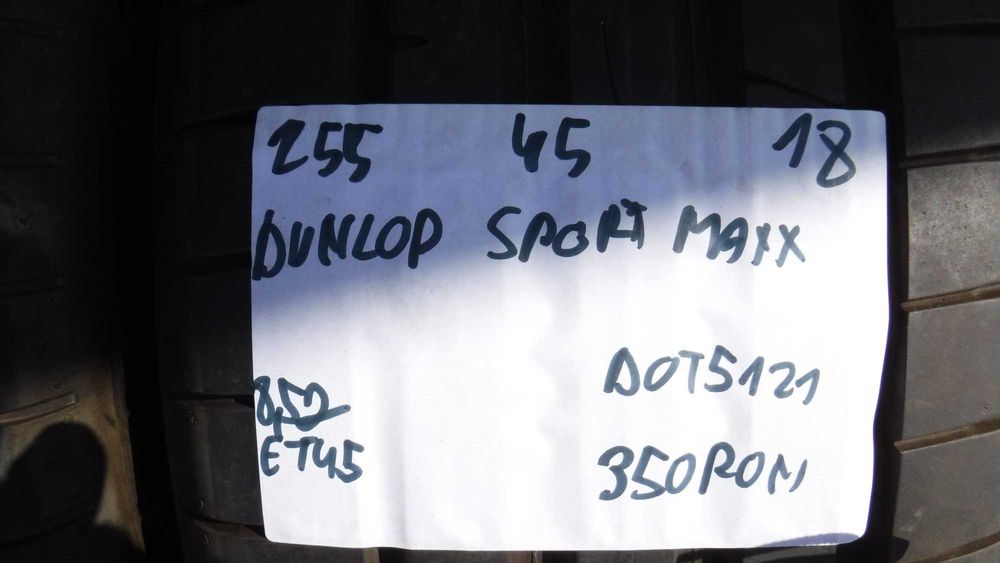 255 45 18
DUNLOP SPORT MAXX
DOT5121
8,5J
ET45
350RON